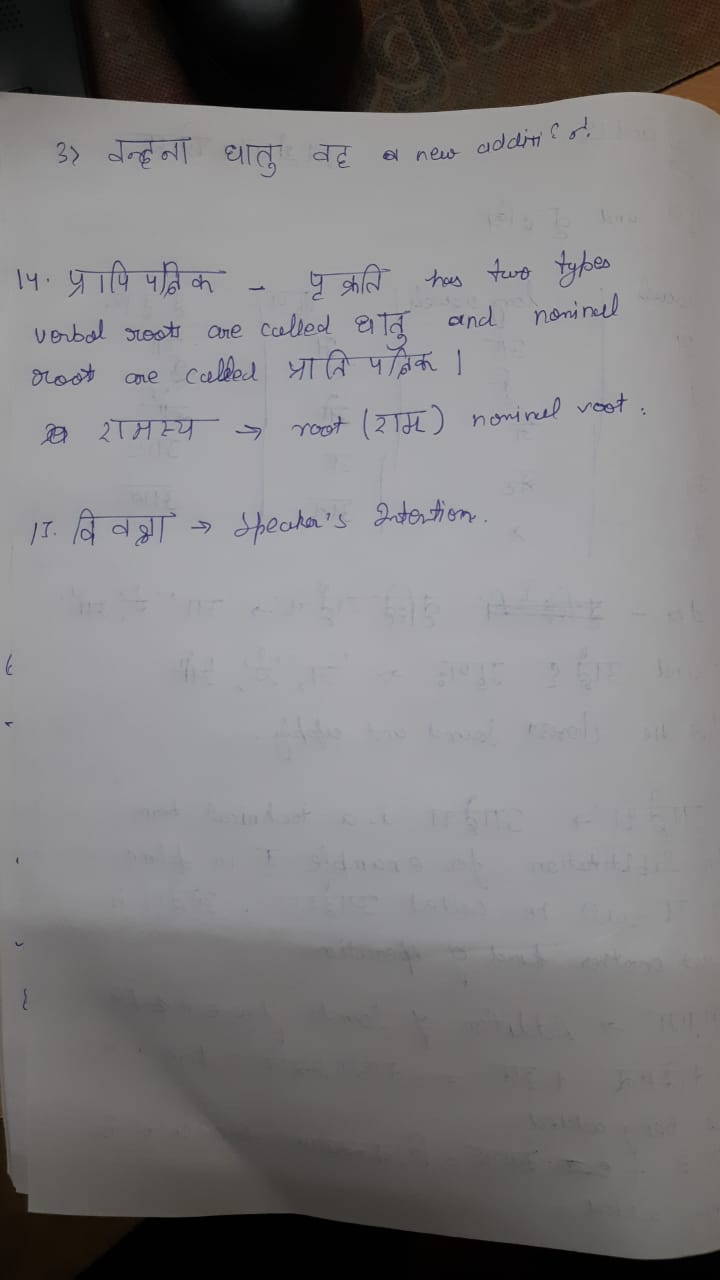 3> वन्हना धातु वह a new additi
14. प्रापि पदिक - पृ क्रति has two types
verbal roots are called धातु and nominal
roots are called प्राति पदिक |
रामस्य → root (राम) nominal root.
15. वि वक्षा → Speaker's Intention.